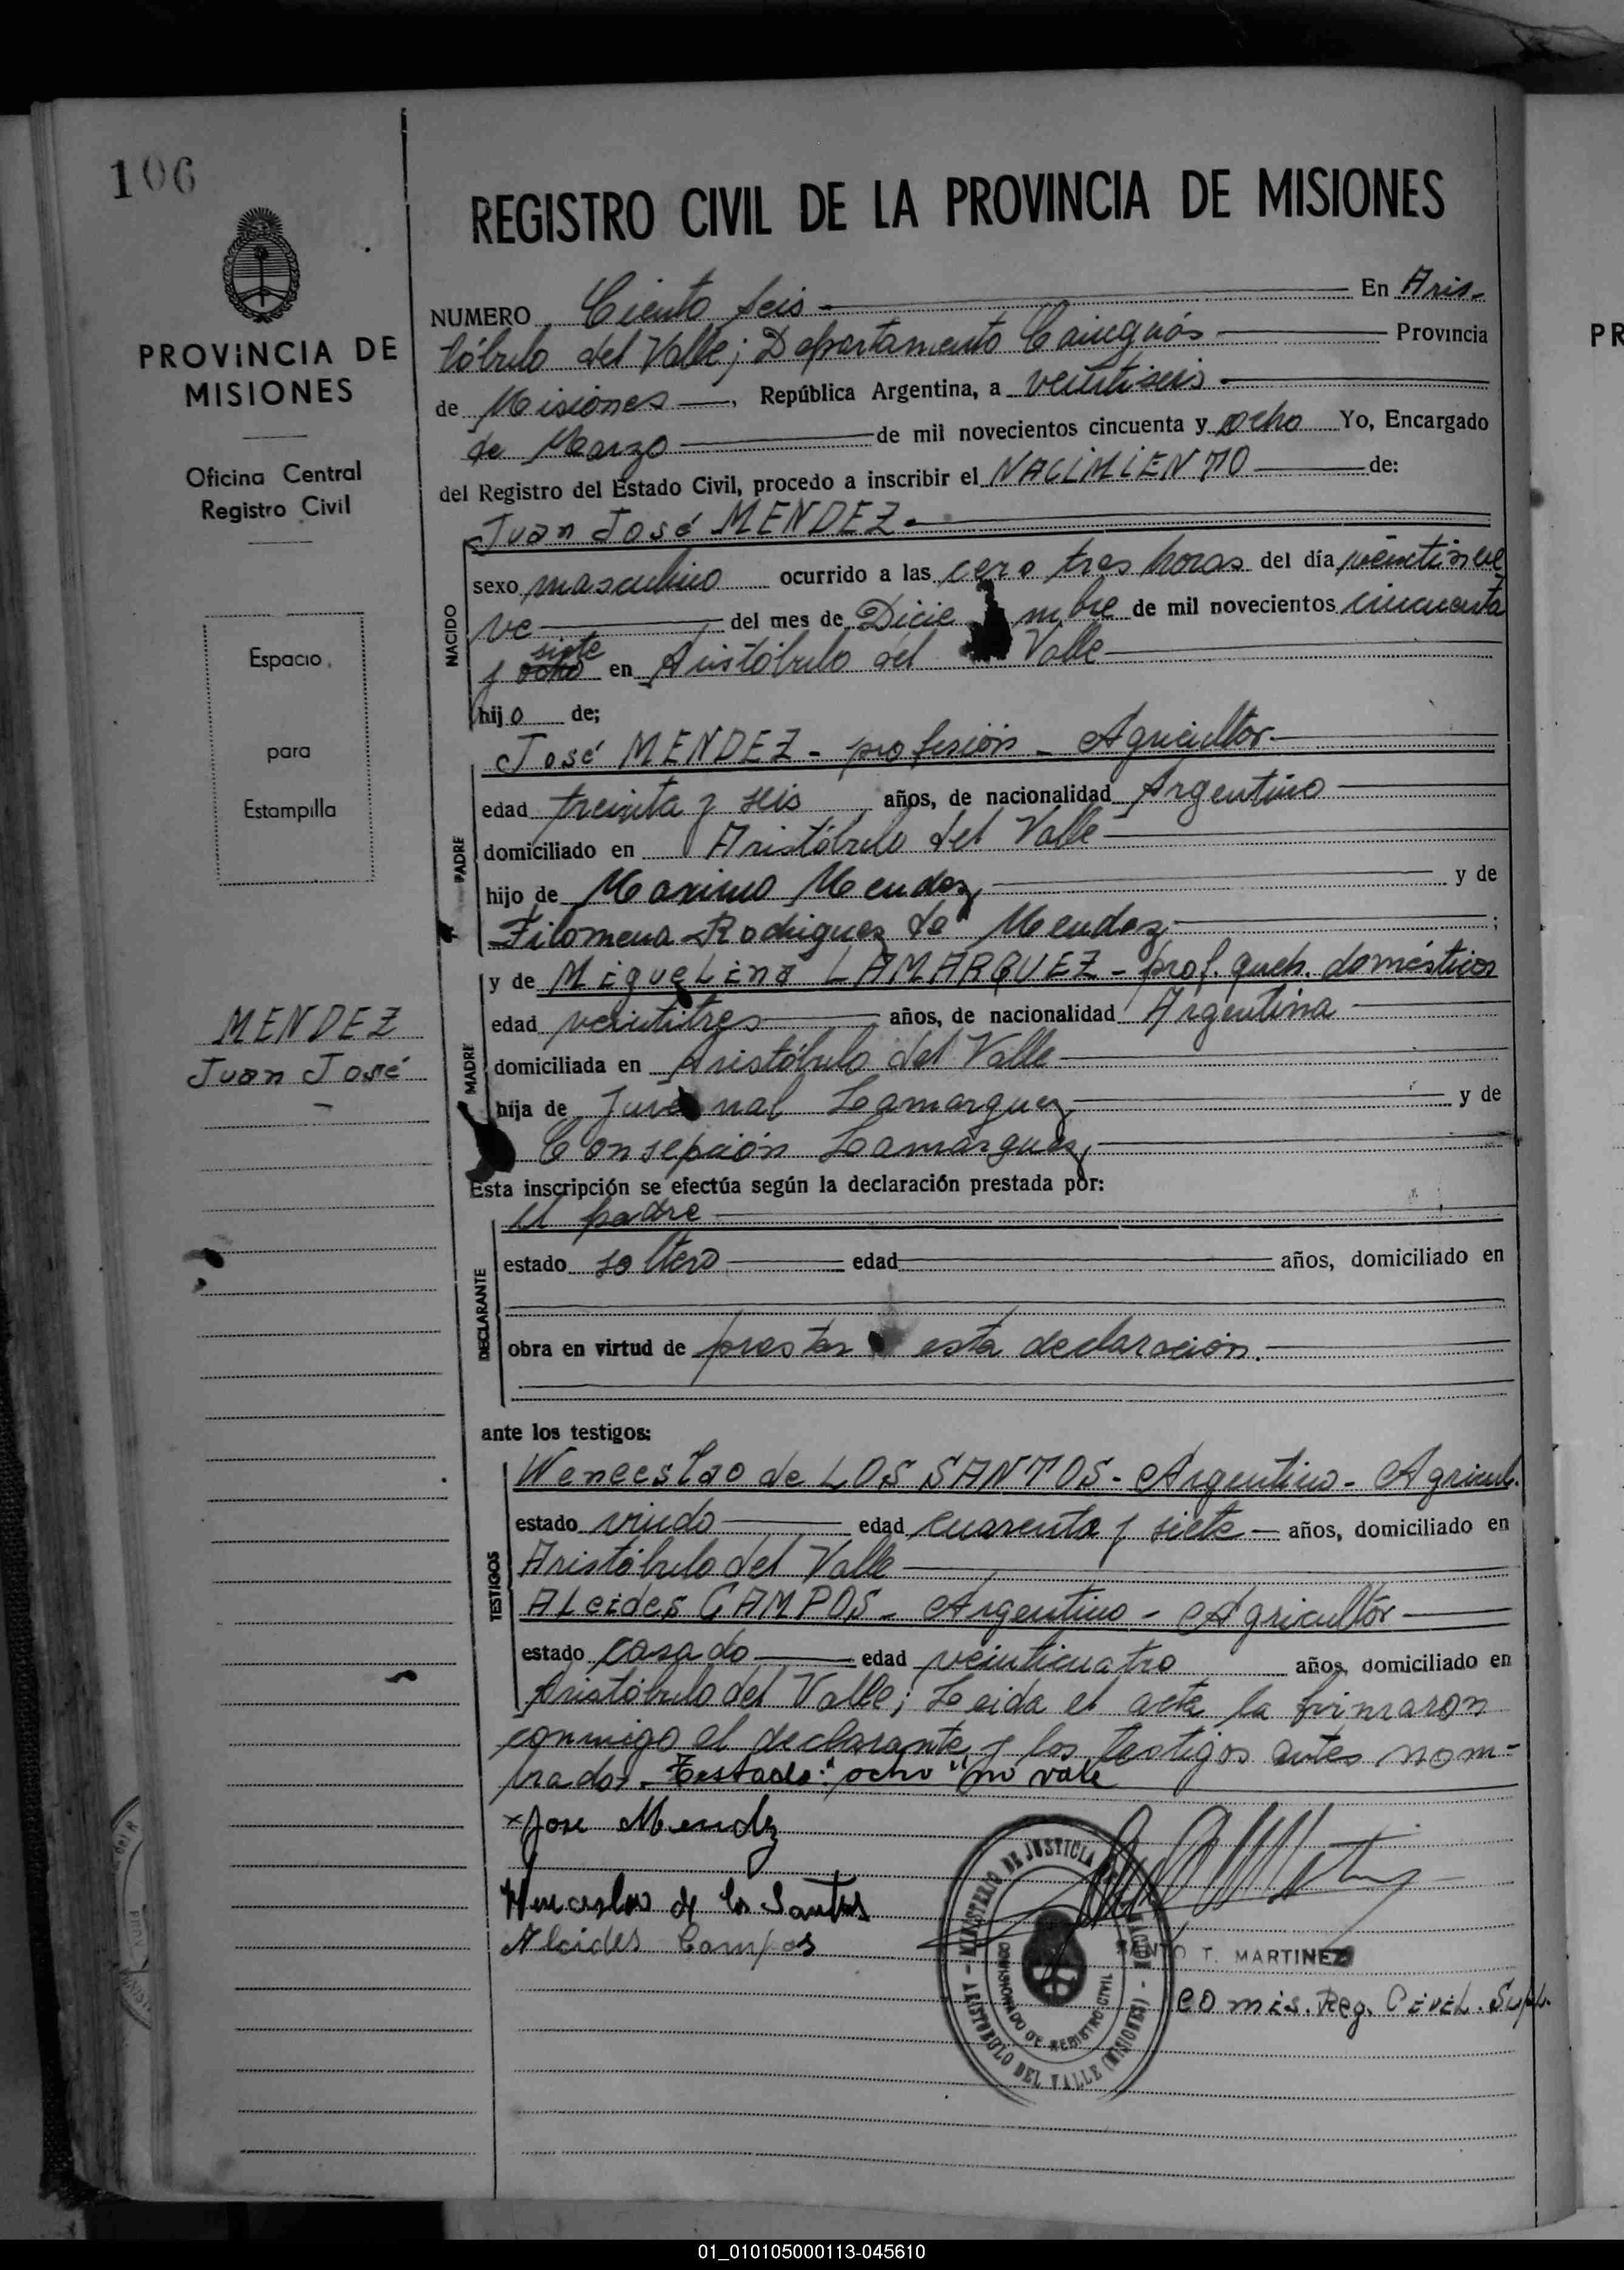 106
PROVINCIA DE
MISIONES
Oficina Central
Registro Civil
Espacio
para
Estampilla
MENDEZ
Juan José
REGISTRO CIVIL DE LA PROVINCIA DE MISIONES
NUMERO Ciento seis En Aris-
tóbulo del Valle; Departamento Cainguás Provincia
de Misiones, República Argentina, a veintiseis
de Marzo de mil novecientos cincuenta y ocho Yo, Encargado
del Registro del Estado Civil, procedo a inscribir el NACIMIENTO de:
Juan José MENDEZ.
NACIDO
sexo masculino ocurrido a las cero tres horas del día veintinue
ve del mes de Diciembre de mil novecientos cincuenta
siete
y ocho en Aristóbulo del Valle
hijo de;
José MENDEZ - profesión - Agricultor
PADRE
edad treinta y seis años, de nacionalidad Argentino
domiciliado en Aristóbulo del Valle
hijo de Maximo Mendez y de
Filomena Rodriguez de Mendez;
y de Miguelina LAMARQUEZ - prof. queh. domésticos
MADRE
edad veintitres años, de nacionalidad Argentina
domiciliada en Aristóbulo del Valle
hija de Juvenal Lamarquez y de
Consepción Lamarquez
Esta inscripción se efectúa según la declaración prestada por:
el padre
DECLARANTE
estado soltero edad años, domiciliado en
obra en virtud de prestar esta declaración.
ante los testigos:
TESTIGOS
Wenceslao de LOS SANTOS - Argentino - Agricult.
estado viudo edad cuarenta y siete años, domiciliado en
Aristóbulo del Valle
Alcides CAMPOS - Argentino - Agricultor
estado casado edad veinticuatro años, domiciliado en
Aristóbulo del Valle; Leida el acta la firmaron
conmigo el declarante y los testigos antes nom-
brados. Testado: "ocho" no vale
x Jose Mendez
Wenceslao de los Santos
Alcides Campos
MINISTERIO DE JUSTICIA
COMISIONADO DE REGISTRO CIVIL
ARISTOBULO DEL VALLE (MISIONES)
SANTO T. MARTINEZ
Comis. Reg. Civil. Supl.
PR
01_010105000113-045610